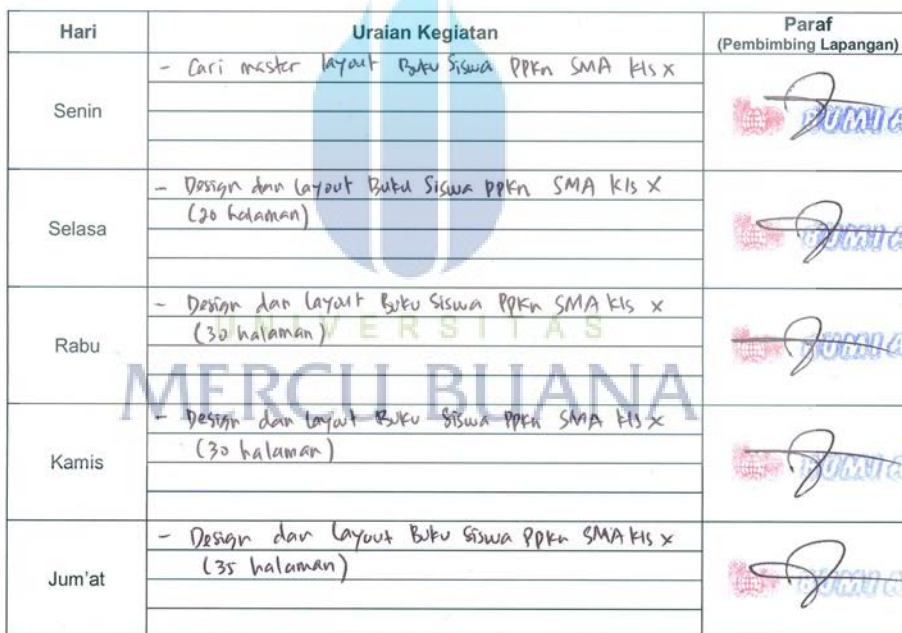 Hari Uraian Kegiatan Paraf
(Pembimbing Lapangan)
Senin
- Cari master layout Buku Siswa PPKn SMA kls X
BUMI A
Selasa
- Design dan layout Buku Siswa PPKn SMA kls X
(20 halaman)
BUMI A
Rabu
- Design dan layout Buku Siswa PPKn SMA kls X
(30 halaman)
BUMI A
UNIVERSITAS
MERCU BUANA
Kamis
- Design dan layout Buku Siswa PPKn SMA kls X
(30 halaman)
BUMI A
Jum'at
- Design dan layout Buku Siswa PPKn SMA kls X
(35 halaman)
BUMI A